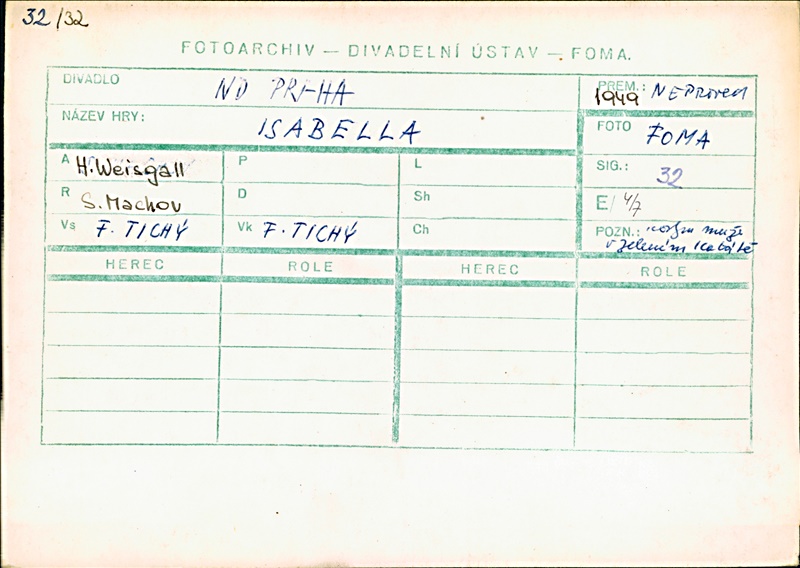 32/32
FOTOARCHIV — DIVADELNÍ ÚSTAV — FOMA.
DIVADLO ND PRAHA
PREM.: 1949 NEPROVED
NÁZEV HRY: ISABELLA
FOTO FOMA
A H. Weisgall P L
SIG.: 32
R S. Machov D Sh
E/ 4/7
Vs F. TICHÝ Vk F. TICHÝ Ch
POZN.: muže
v zeleném kabátě
HEREC ROLE HEREC ROLE